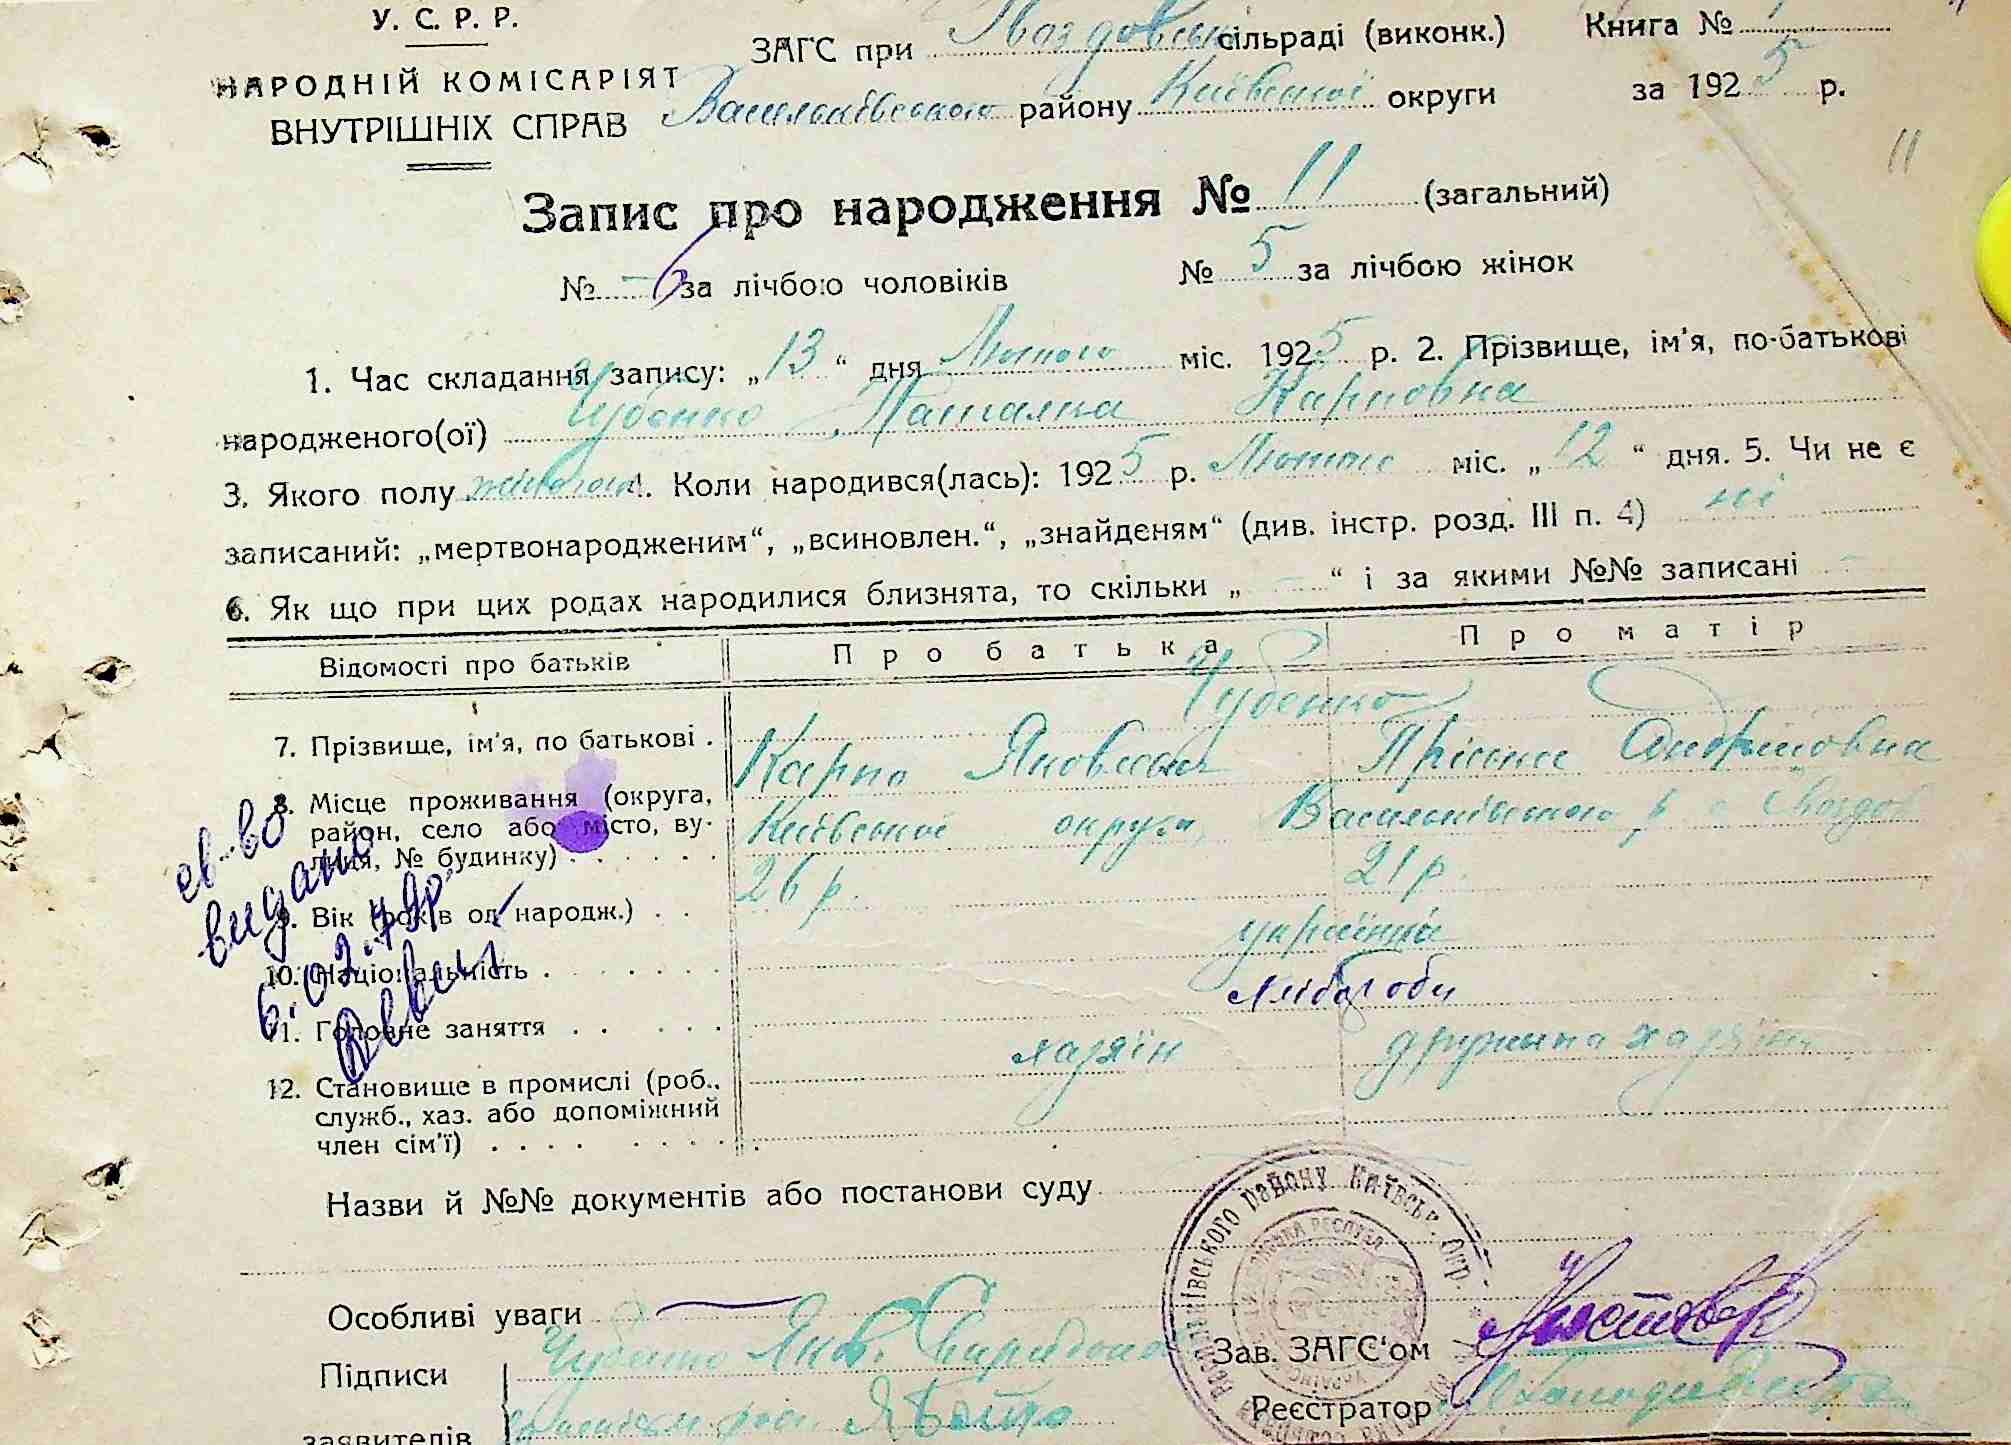 У. С. Р. Р.
НАРОДНІЙ КОМІСАРІЯТ
ВНУТРІШНІХ СПРАВ
ЗАГС при сільраді (виконк.) Книга №
Васильківського району Київської округи за 1925 р.
11
Запис про народження № 11 (загальний)
№ – за лічбою чоловіків № 5 за лічбою жінок
1. Час складання запису: „13“ дня Лютого міс. 1925 р. 2. Прізвище, ім'я, по-батькові
народженого(ої) Чубенко Наталка Карповна
3. Якого полу жіночого 4. Коли народився(лась): 1925 р. Лютого міс. „12“ дня. 5. Чи не є
записаний: „мертвонародженим“, „всиновлен.“, „знайденям“ (див. інстр. розд. III п. 4) ні
6. Як що при цих родах народилися близнята, то скільки „ – “ і за якими №№ записані –
Відомості про батьків Про батька Про матір
7. Прізвище, ім'я, по батькові . Чубенко
Карпо Яковлевич Пріська Андріювна
8. Місце проживання (округа, район, село або місто, вулиця, № будинку) Київської округи, Васильківського р. с.
9. Вік (років од народж.) . . 26 р. 21 р.
10. Національність . українці
11. Головне заняття . . хлібороби
12. Становище в промислі (роб., служб., хаз. або допоміжний член сім'ї) хазяїн дружина хазяїна
св-во
видано
6.02.79р.
Назви й №№ документів або постанови суду
Особливі уваги —
Підписи Чубенко Яків
заявителів
Зав. ЗАГС‘ом
Реєстратор
району Київськ. Окр.